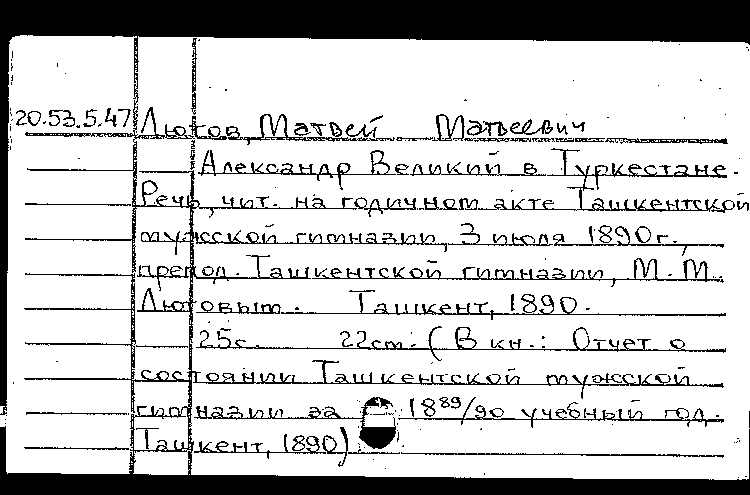 20.53.5.47 Лютов, Матвей Матвеевич
Александр Великий в Туркестане.
Речь, чит. на годичном акте Ташкентской
мужской гимназии, 3 июля 1890 г.,
препод. Ташкентской гимназии, М. М.
Лютовым. Ташкент, 1890.
25 с. 22 cm. (В кн.: Отчет о
состоянии Ташкентской мужской
гимназии за 1889/90 учебный год.
Ташкент, 1890)